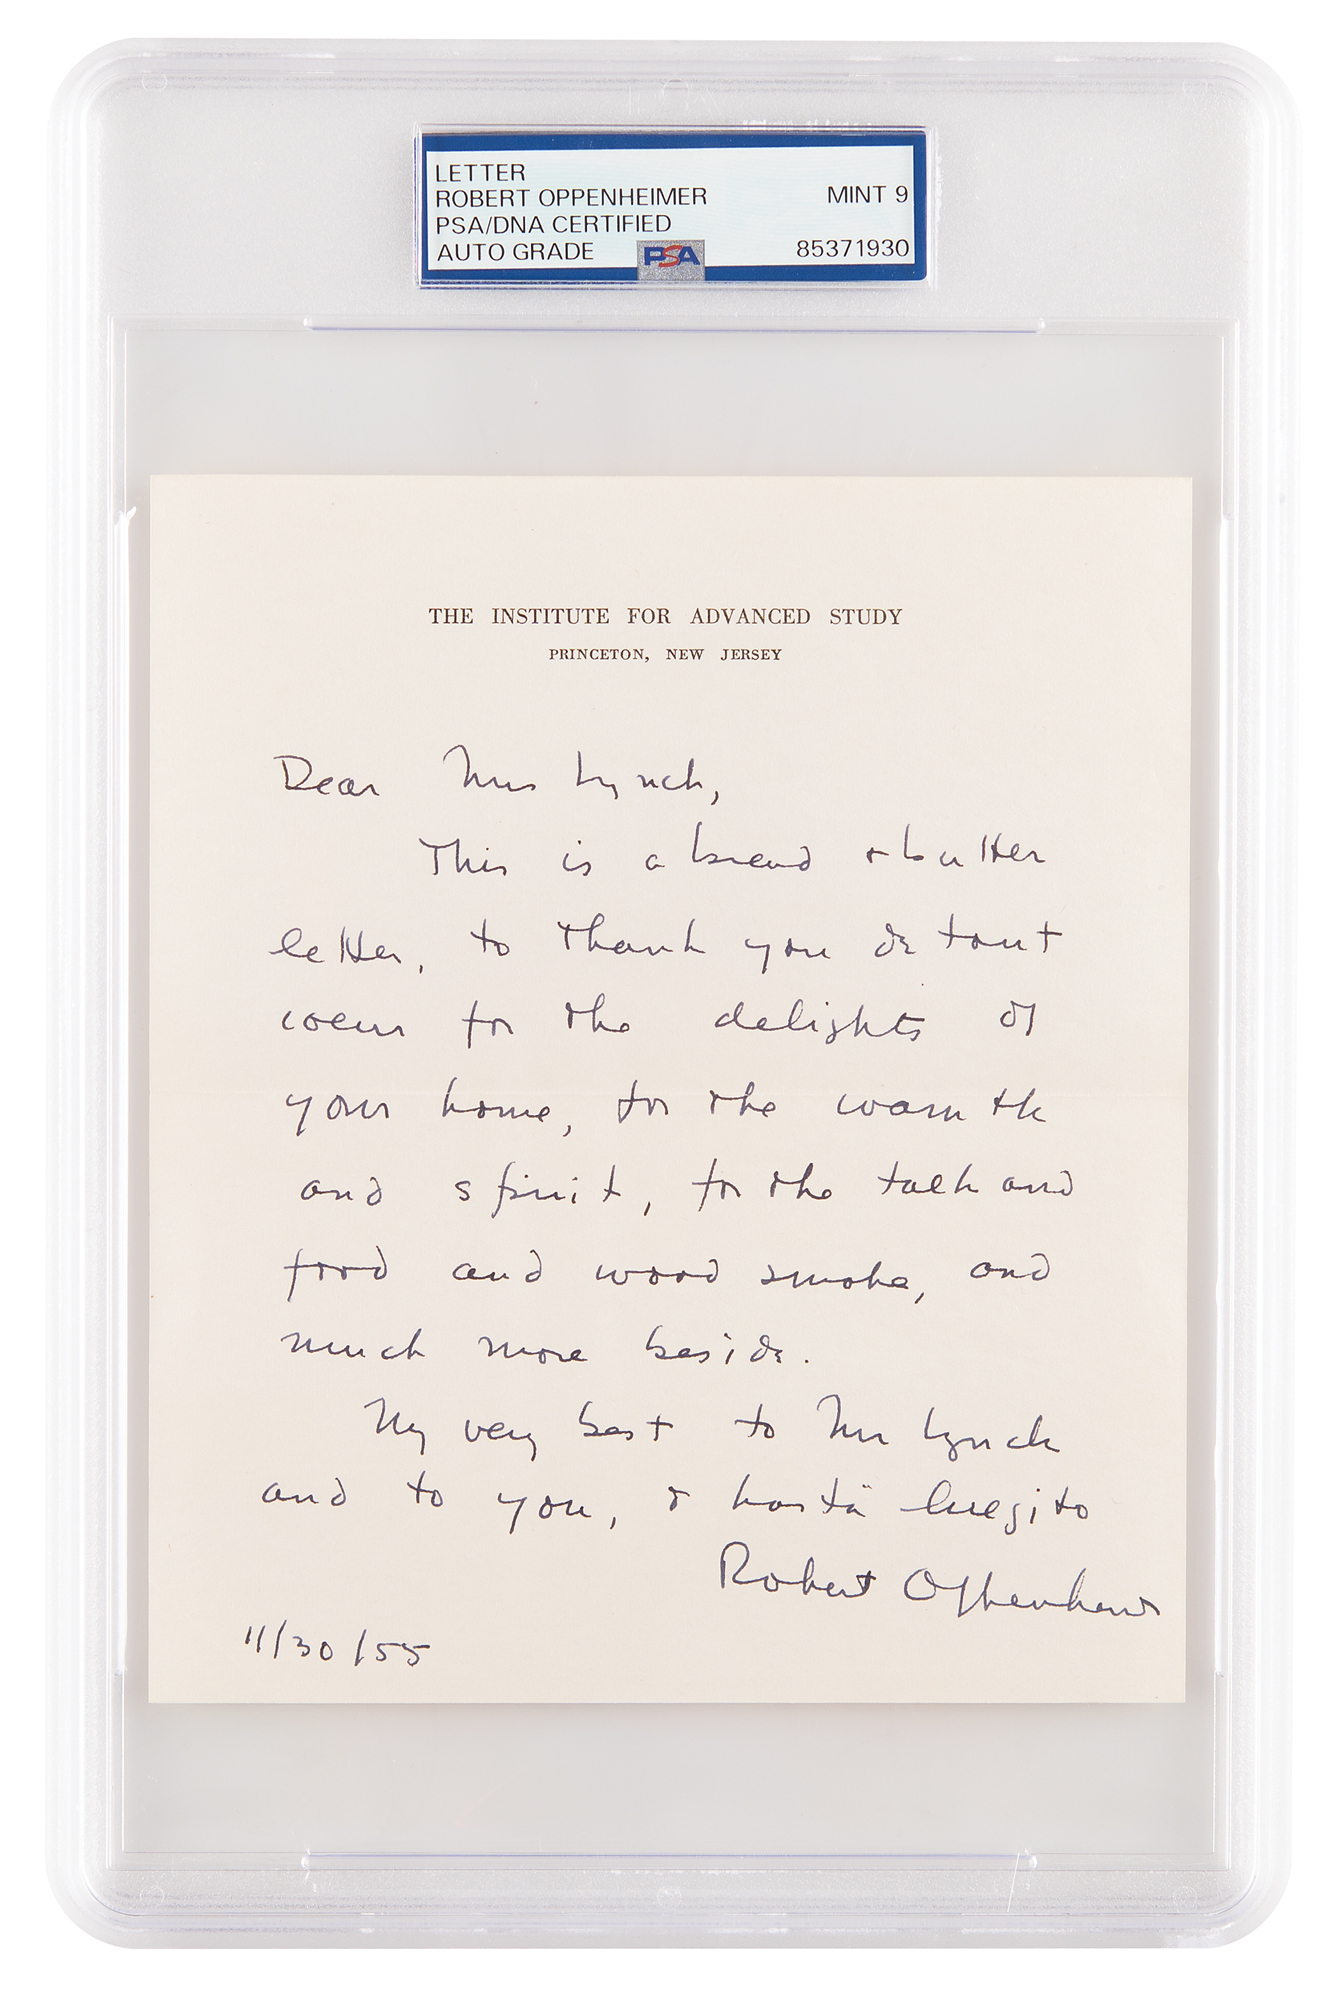 LETTER
ROBERT OPPENHEIMER MINT 9
PSA/DNA CERTIFIED
AUTO GRADE PSA 85371930
THE INSTITUTE FOR ADVANCED STUDY
PRINCETON, NEW JERSEY
Dear Mrs Lynch,
This is a bread + butter
letter, to thank you de tout
coeur for the delights of
your home, for the warmth
and spirit, for the talk and
food and wood smoke, and
much more beside.
My very best to Mr Lynch
and to you, & hasta luegito
Robert Oppenheimer
11/30/55